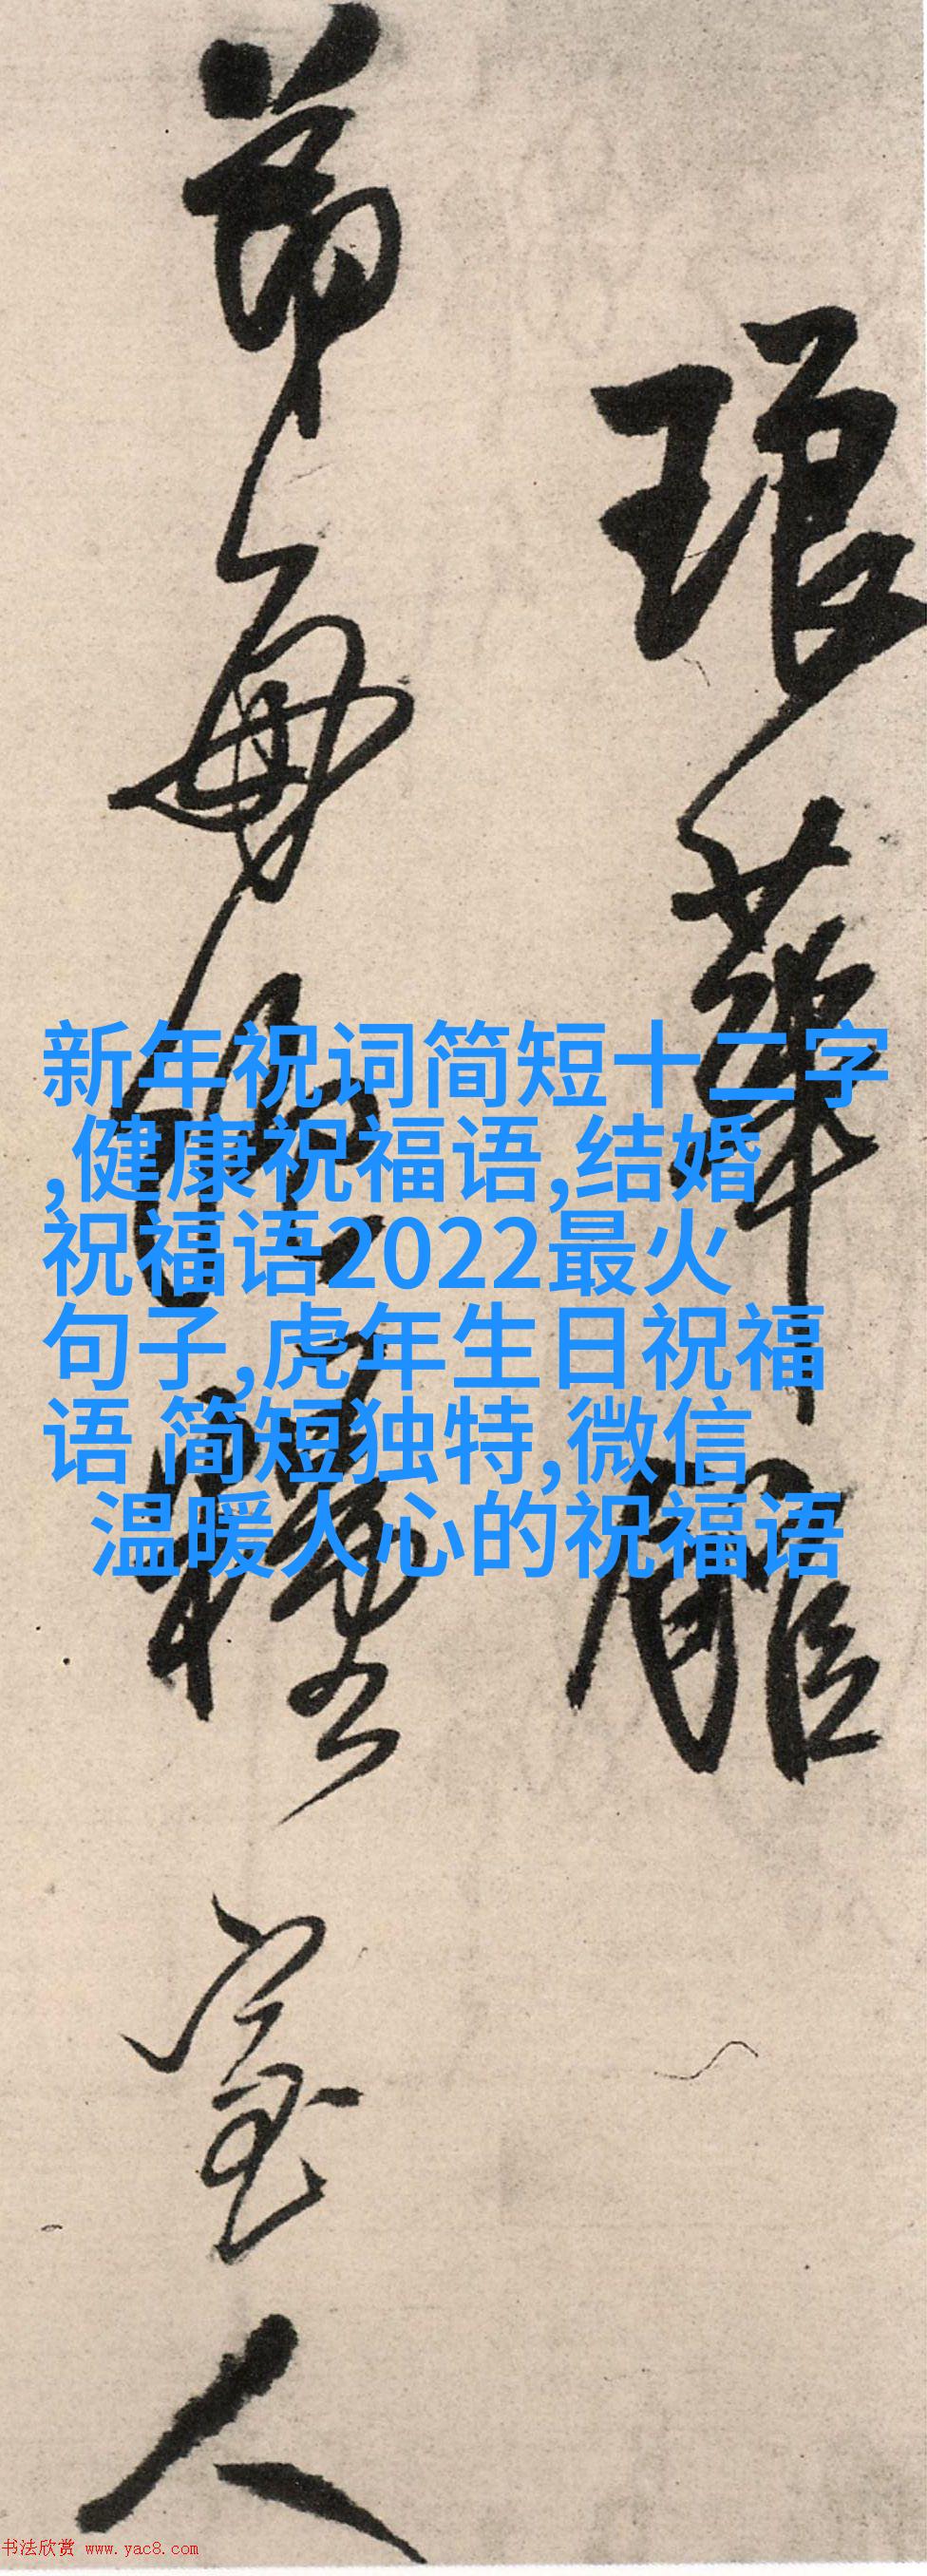 琅華
人
新年祝词简短十二字
,健康祝福语,结婚
祝福语2022最火
句子,虎年生日祝福
语 简短独特,微信
温暖人心的祝福语
书法欣赏 www.yac8.com